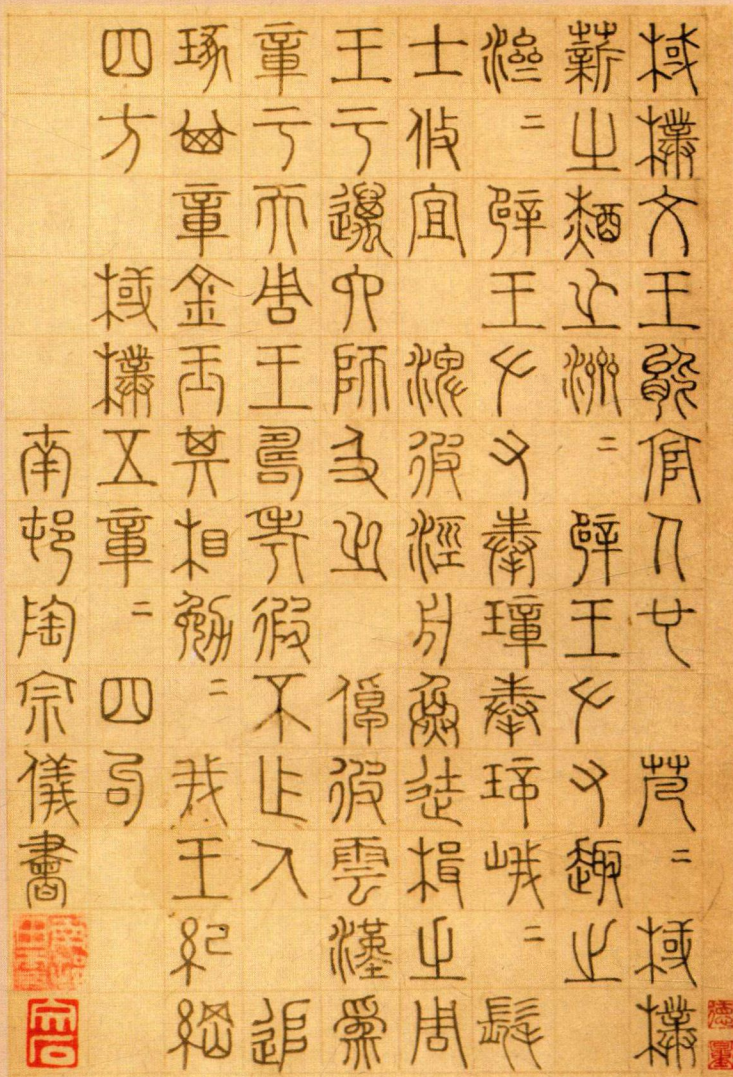 棫樸文王能官人也 芃二棫樸
薪之槱之濟二辟王左右趣之
濟二辟王左右奉璋奉璋峨二髦
士攸宜 淠彼涇舟烝徒楫之周
王于邁六師及之 倬彼雲漢為
章于天周王壽考遐不作人 追
琢其章金玉其相勉二我王紀綱
四方 棫樸五章二四句
南邨陶宗儀書